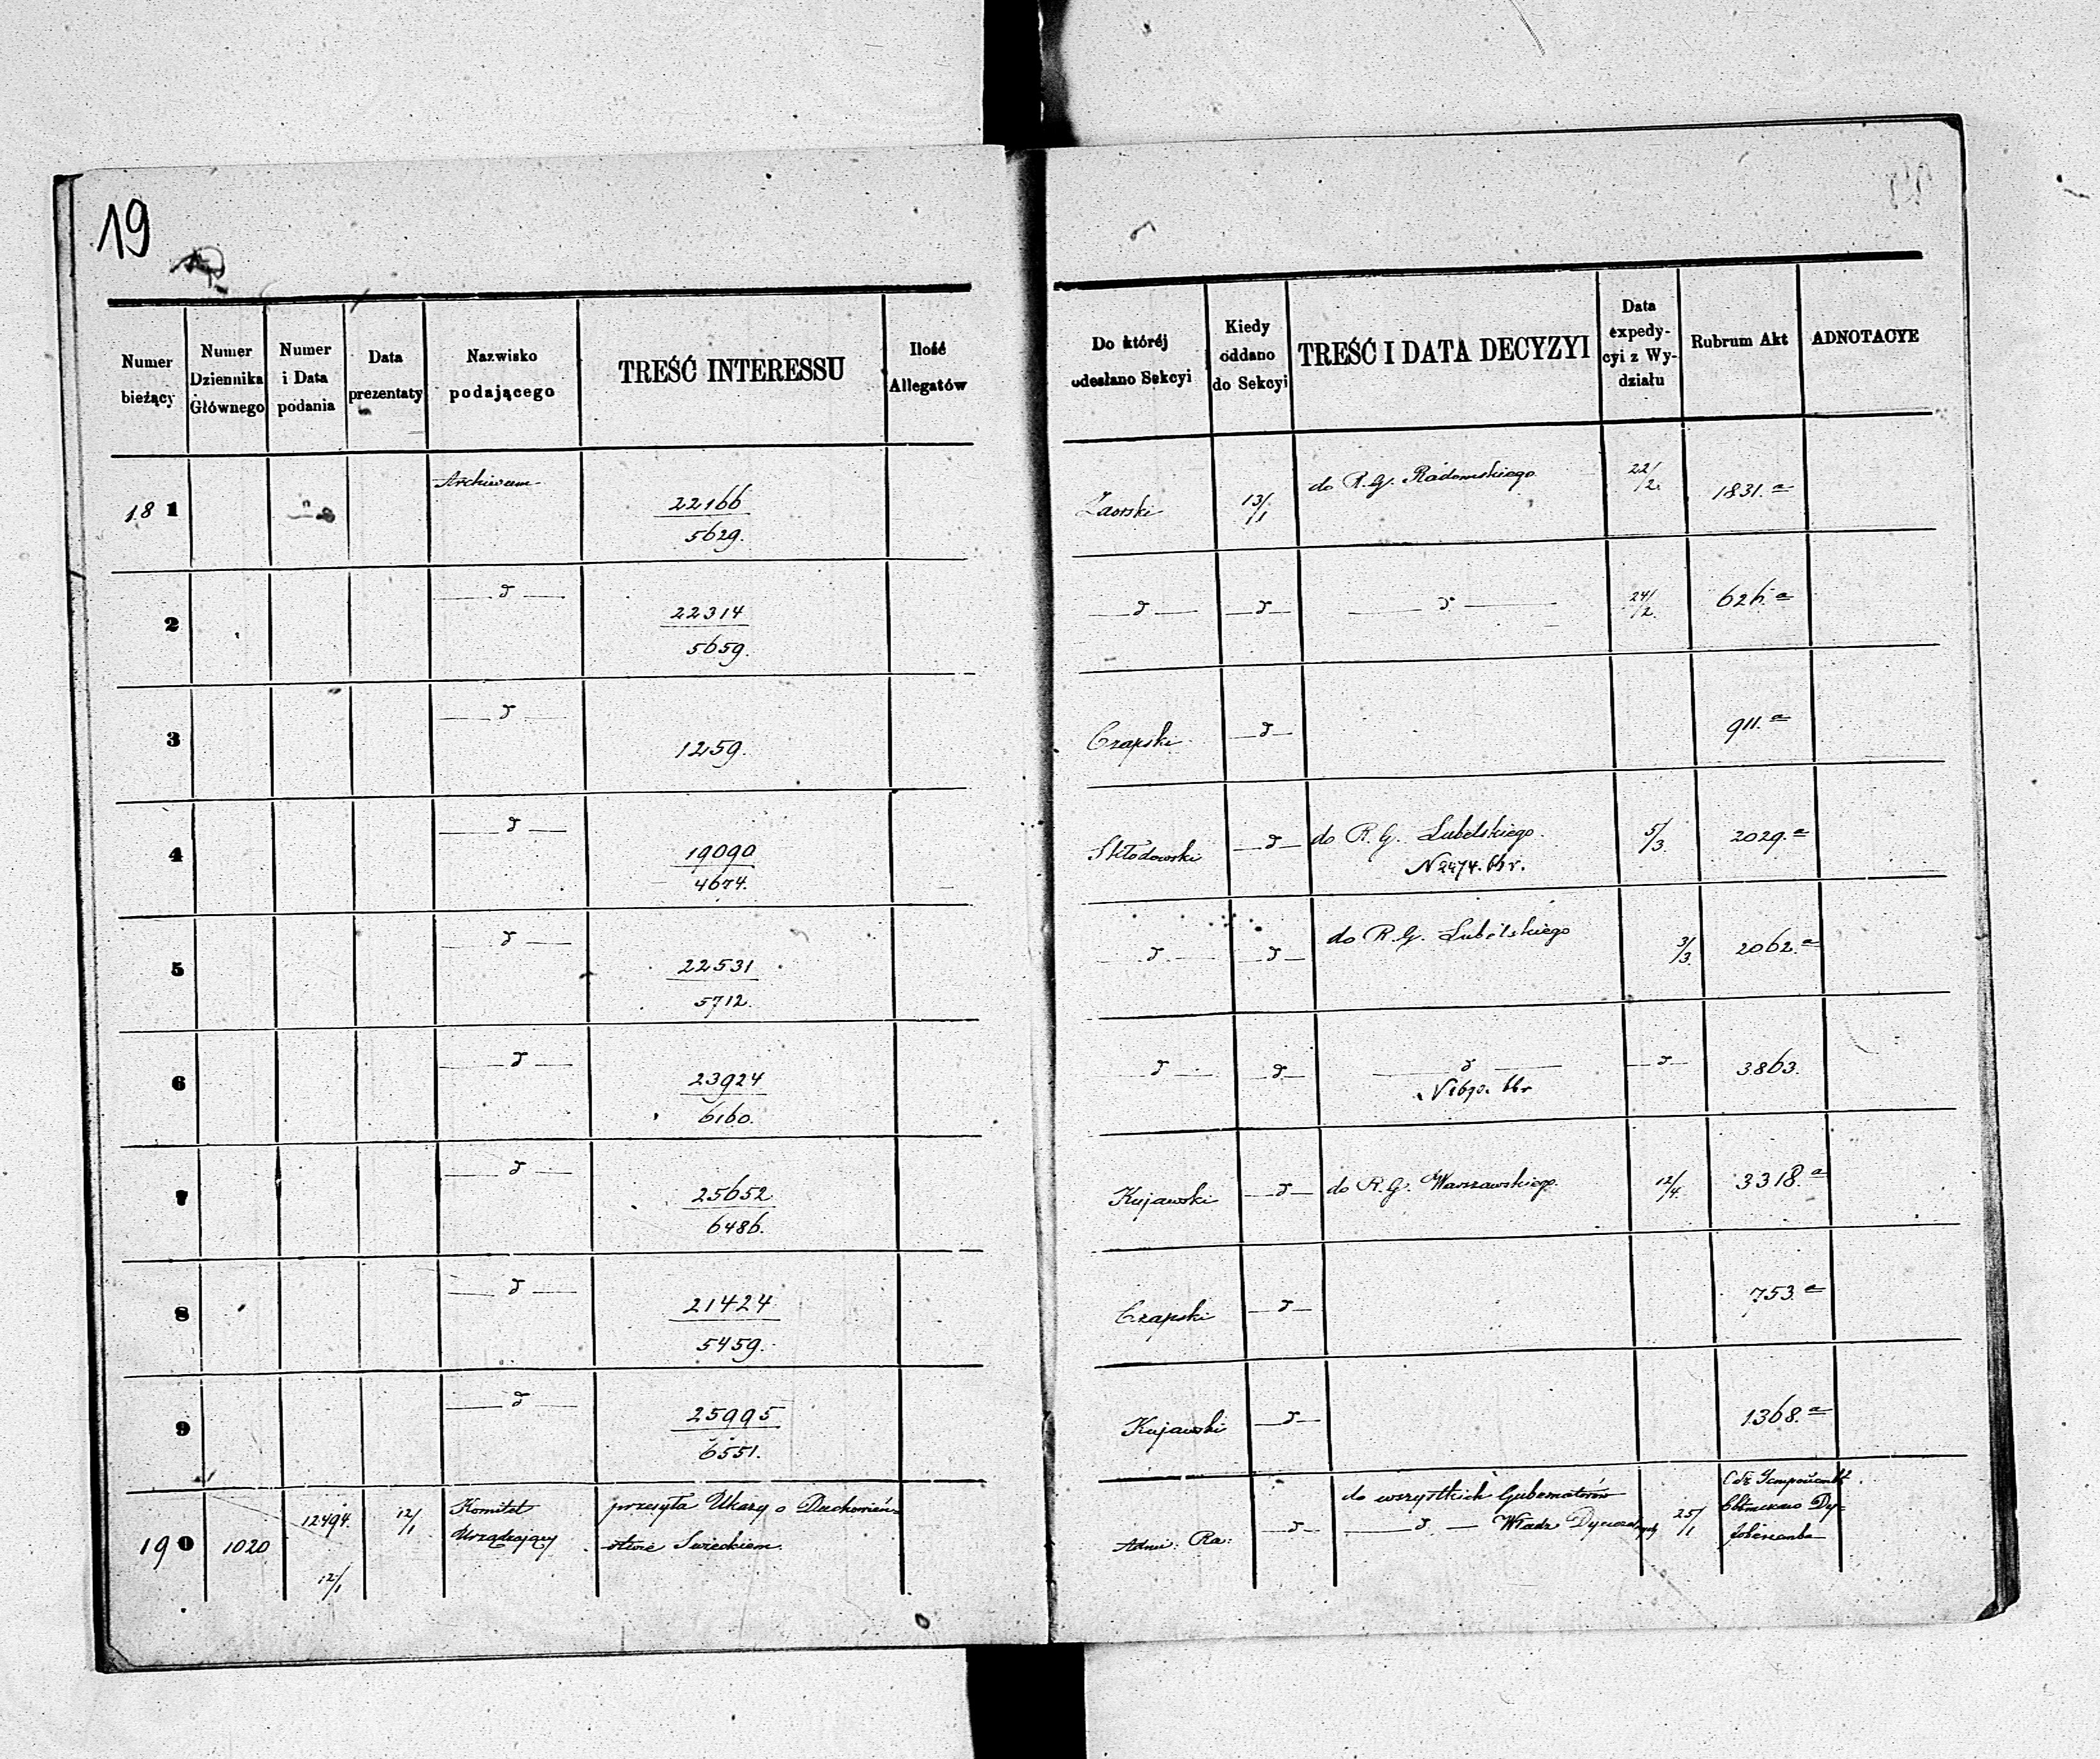 19
Numer bieżący
Numer Dziennika Głównego
Numer i Data podania
Data prezentaty
Nazwisko podającego
TREŚĆ INTERESSU
Ilość Allegatów
Do której odesłano Sekcyi
Kiedy oddano do Sekcyi
TREŚĆ I DATA DECYZYI
Data expedycyi z Wydziału
Rubrum Akt
ADNOTACYE
181 Archiwum 22166 / 5629. Zaorski 13/1 do R. G. Radomskiego 22/2. 1831.a
2 — d — 22314 / 5659. — d — — d — — d — 24/2. 626.a
3 — d — 1259. Czapski — d — 911.a
4 — d — 19090 / 4674. Skłodowski — d — do R. G. Lubelskiego. 5/3. 2029.a
N 2474.
5 — d — 22531 / 5712. — d — — d — do R. G. Lubelskiego 3/3. 2062.a
6 — d — 23924 / 6160. — d — — d — — d — — d — 3863.
7 — d — 25652 / 6486. Kujawski — d — do R. G. Warszawskiego. 12/4. 3318.a
8 — d — 21424 / 5459. Czapski — d — 753.a
9 — d — 25995 / 6551. Kujawski — d — 1368.a
190 1020 12494. 12/1 12/1 Komitet Urządzający
przesyła Ukazy o Duchowień-
stwie Swieckiem.
Adm: Ra: — d —
do wszystkich Gubernatorów
— d — Władz Dyecezalnych
25/1